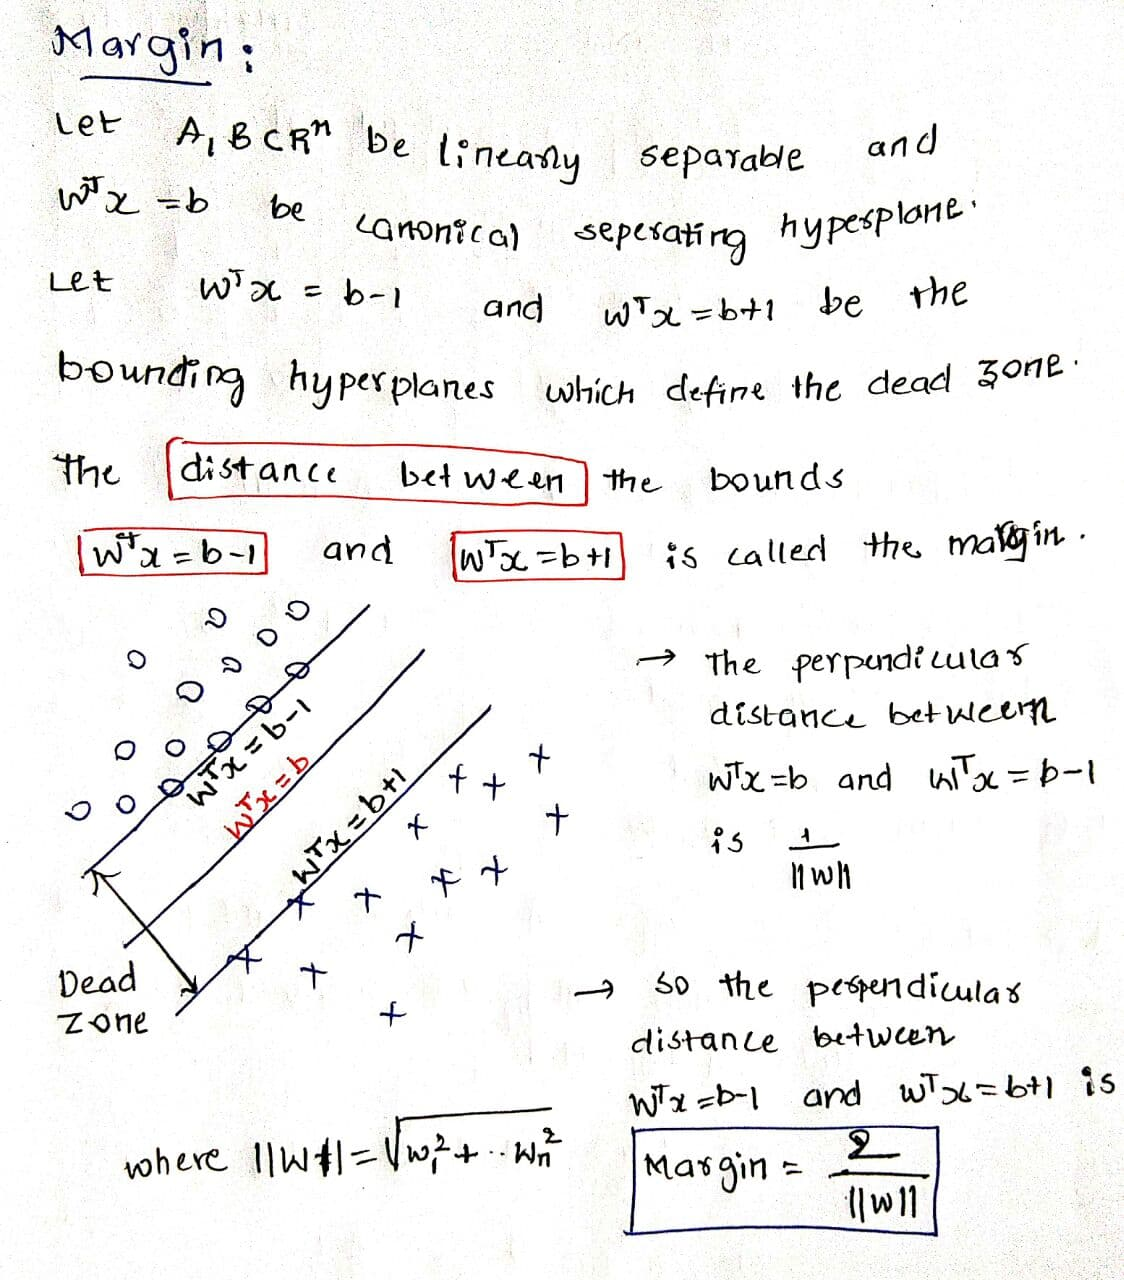 Margin:
Let A, B ⊂ Rⁿ be linearly separable and
wᵀx = b be canonical seperating hyperplane.
Let wᵀx = b-1 and wᵀx = b+1 be the
bounding hyperplanes which define the dead zone.
The distance between the bounds
wᵀx = b-1 and wᵀx = b+1 is called the margin.
wᵀx = b-1
wᵀx = b
wᵀx = b+1
Dead
Zone
→ The perpendicular
distance between
wᵀx = b and wᵀx = b-1
is 1/||w||
→ So the perpendicular
distance between
wᵀx = b-1 and wᵀx = b+1 is
Margin = 2/||w||
where ||w|| = √w₁² + ·· wₙ²